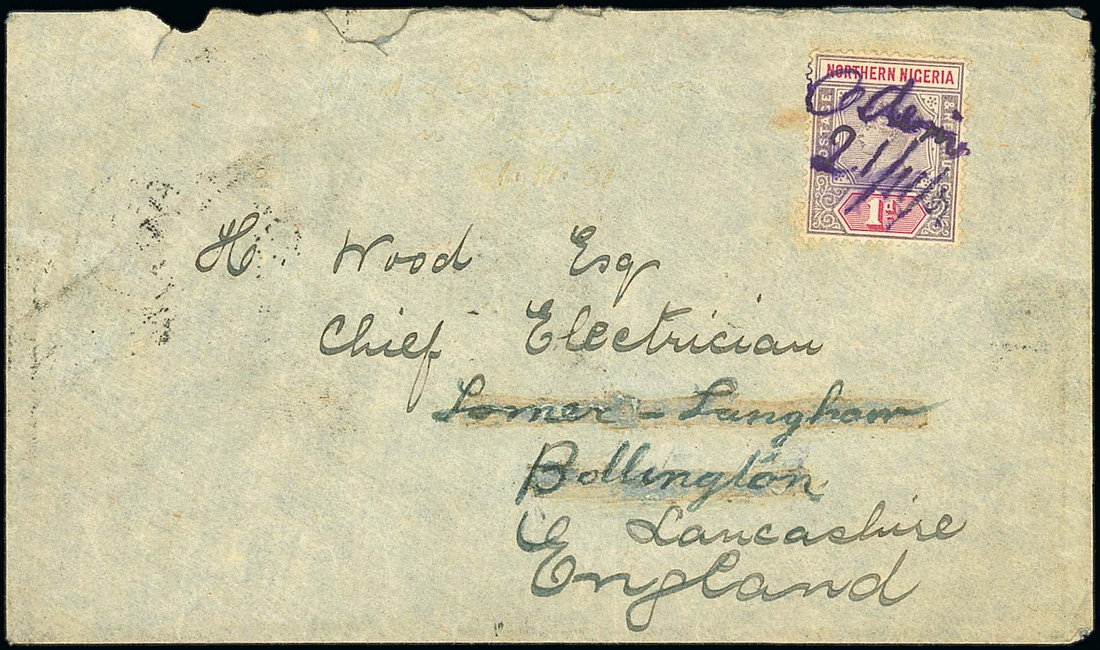 NORTHERN NIGERIA
POSTAGE & REVENUE
1d
H. Wood Esq
Chief Electrician
Bollington
Lancashire
England